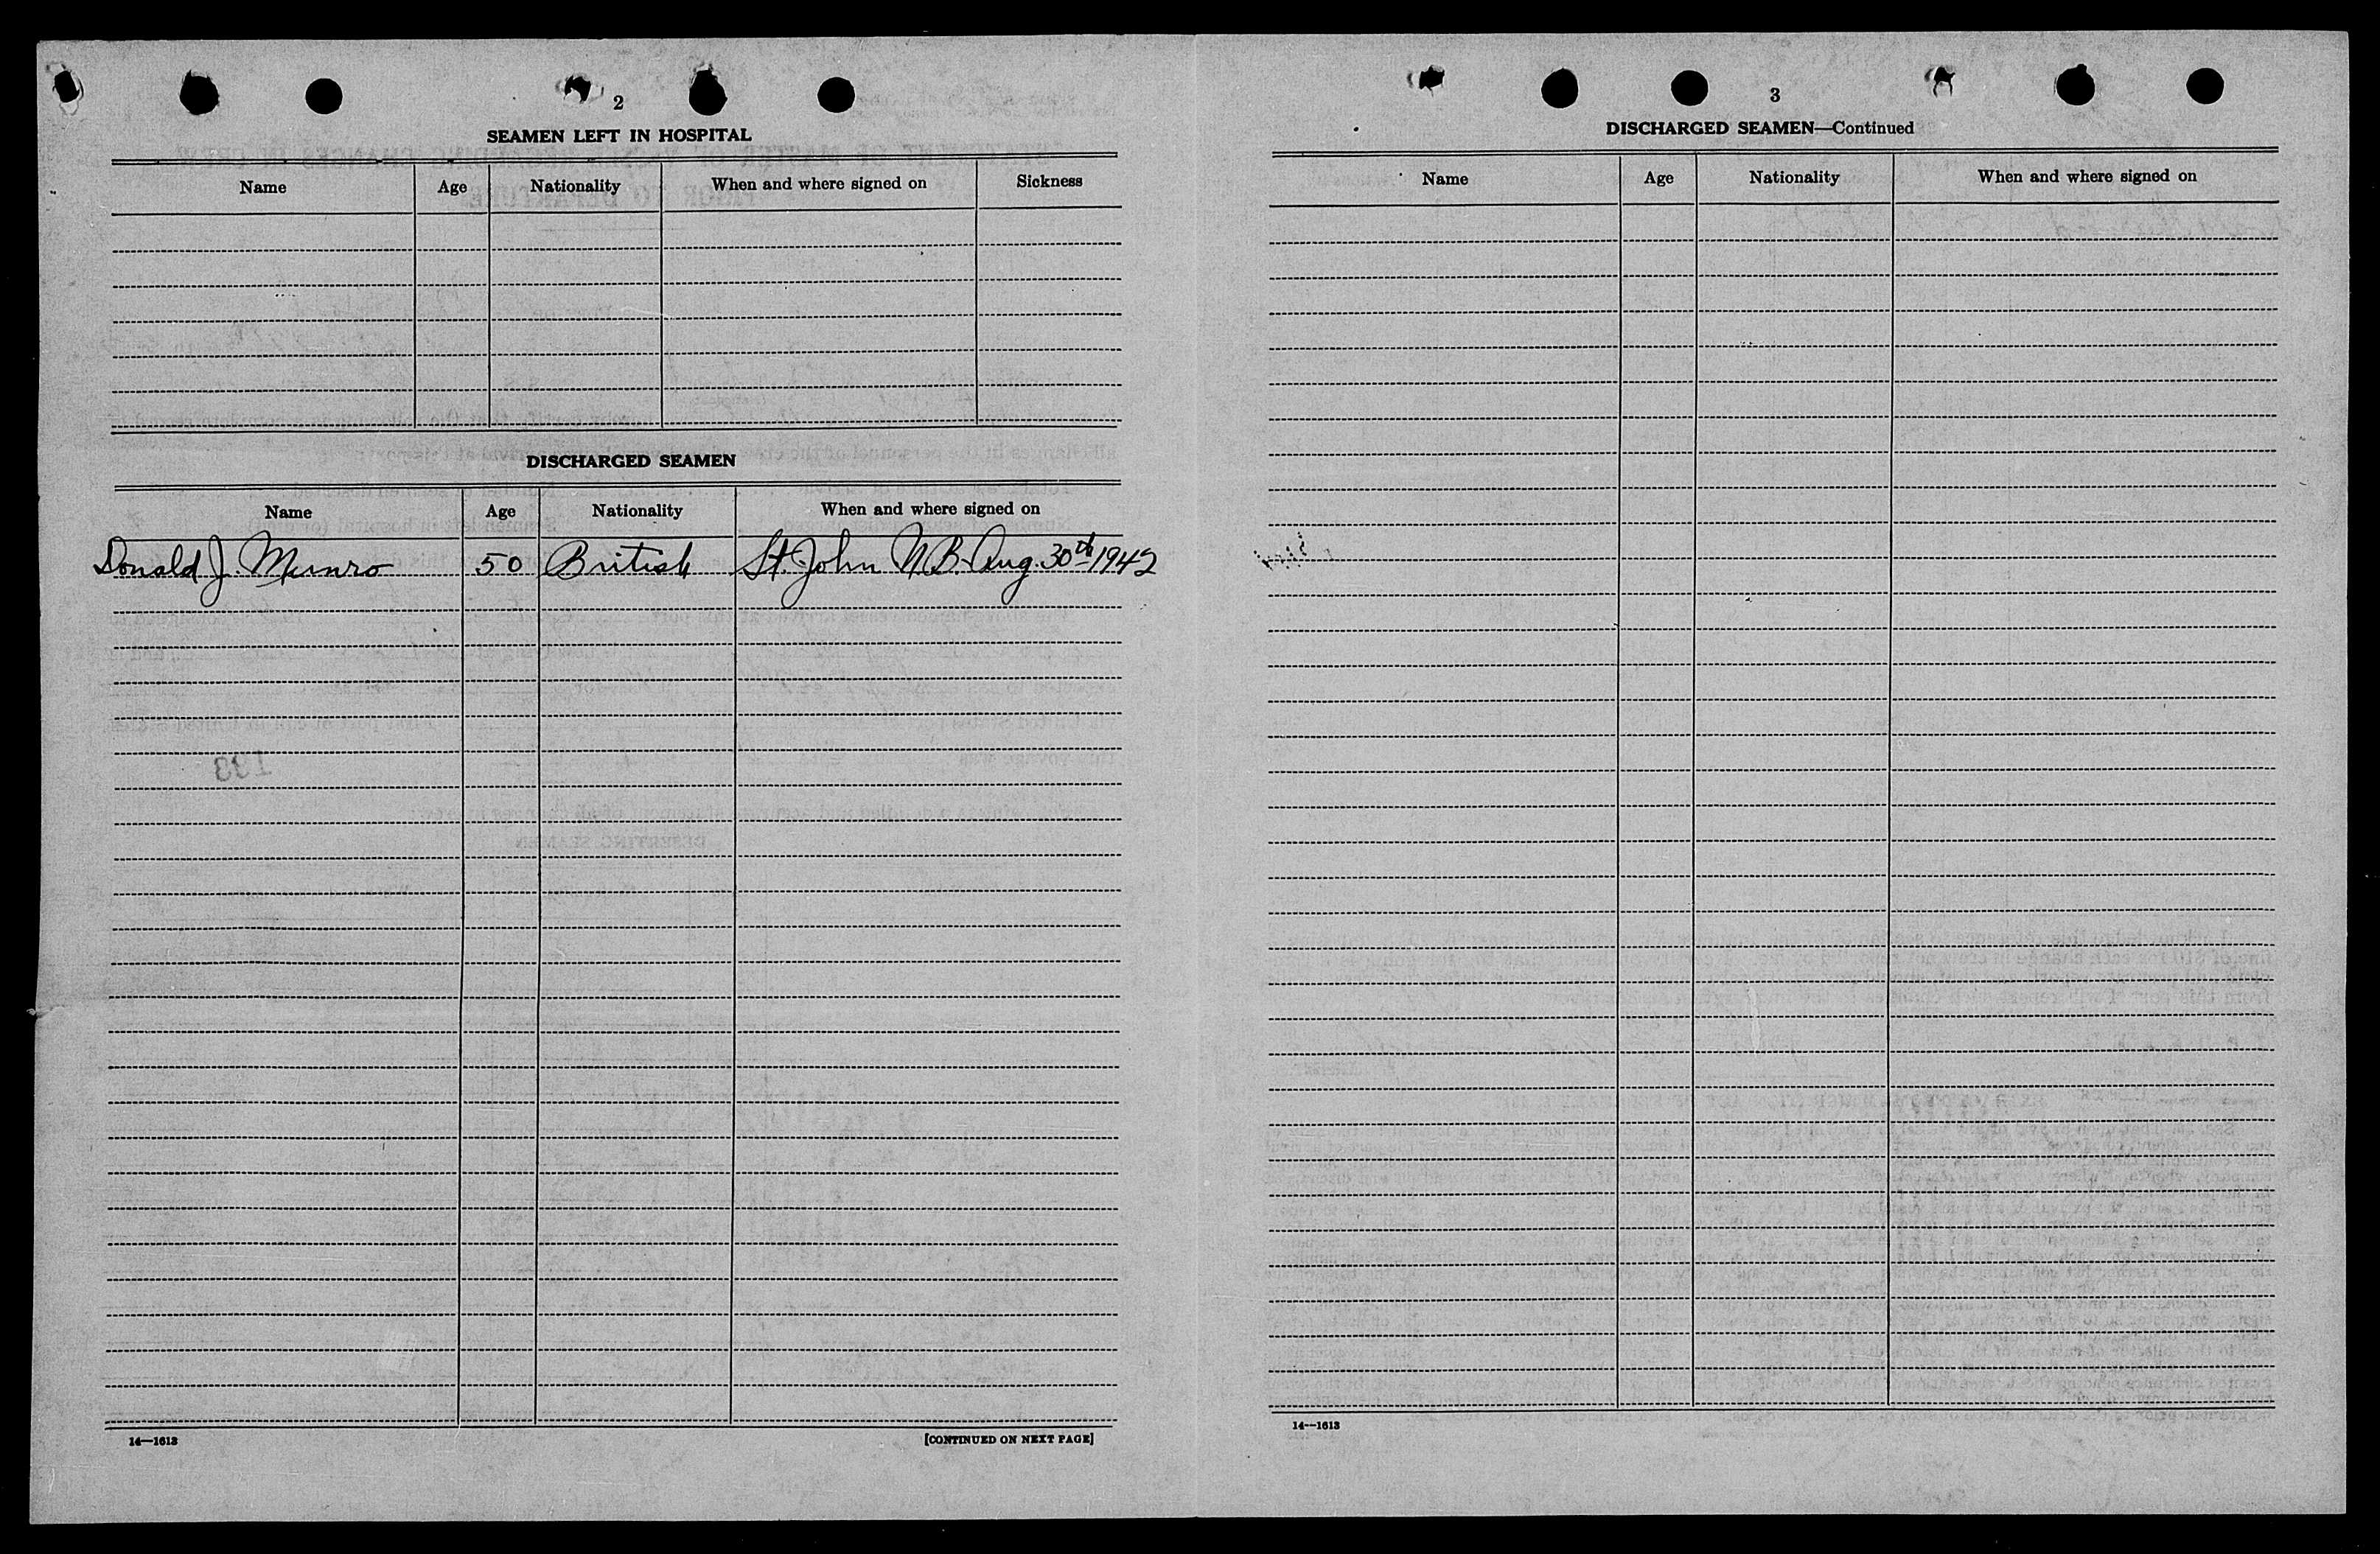 2
SEAMEN LEFT IN HOSPITAL
Name Age Nationality When and where signed on Sickness
DISCHARGED SEAMEN
Name Age Nationality When and where signed on
Donald J. Munro 50 British St. John N.B. Aug. 30th 1942
14—1613
[CONTINUED ON NEXT PAGE]
3
DISCHARGED SEAMEN—Continued
Name Age Nationality When and where signed on
14—1613